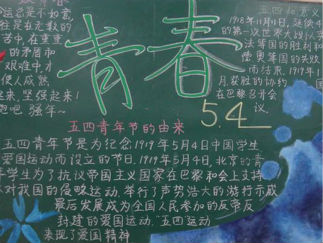 青春
5.4
运总是不如意,
往是在无数的
苦中,在重重
的矛盾和
艰难中才
使人成熟
起来,坚强起来!
五四和意义
1918年11月11日,延续4
的第一次世界大战以英
法等国的胜利和
德奥等国的失败
而结束,1919年1
月获胜的协约
在巴黎召开会
议。
五四青年节的由来
五四青年节是为纪念1919年5月4日中国学生
爱国运动而设立的节日,1919年5月4日,北京的青
年学生为了抗议帝国主义国家在巴黎和会上支持
对我国的侵略运动,举行了声势浩大的游行示威
最后发展成为全国人民参加的反帝反
封建的爱国运动,"五四"运动
表现了爱国精神